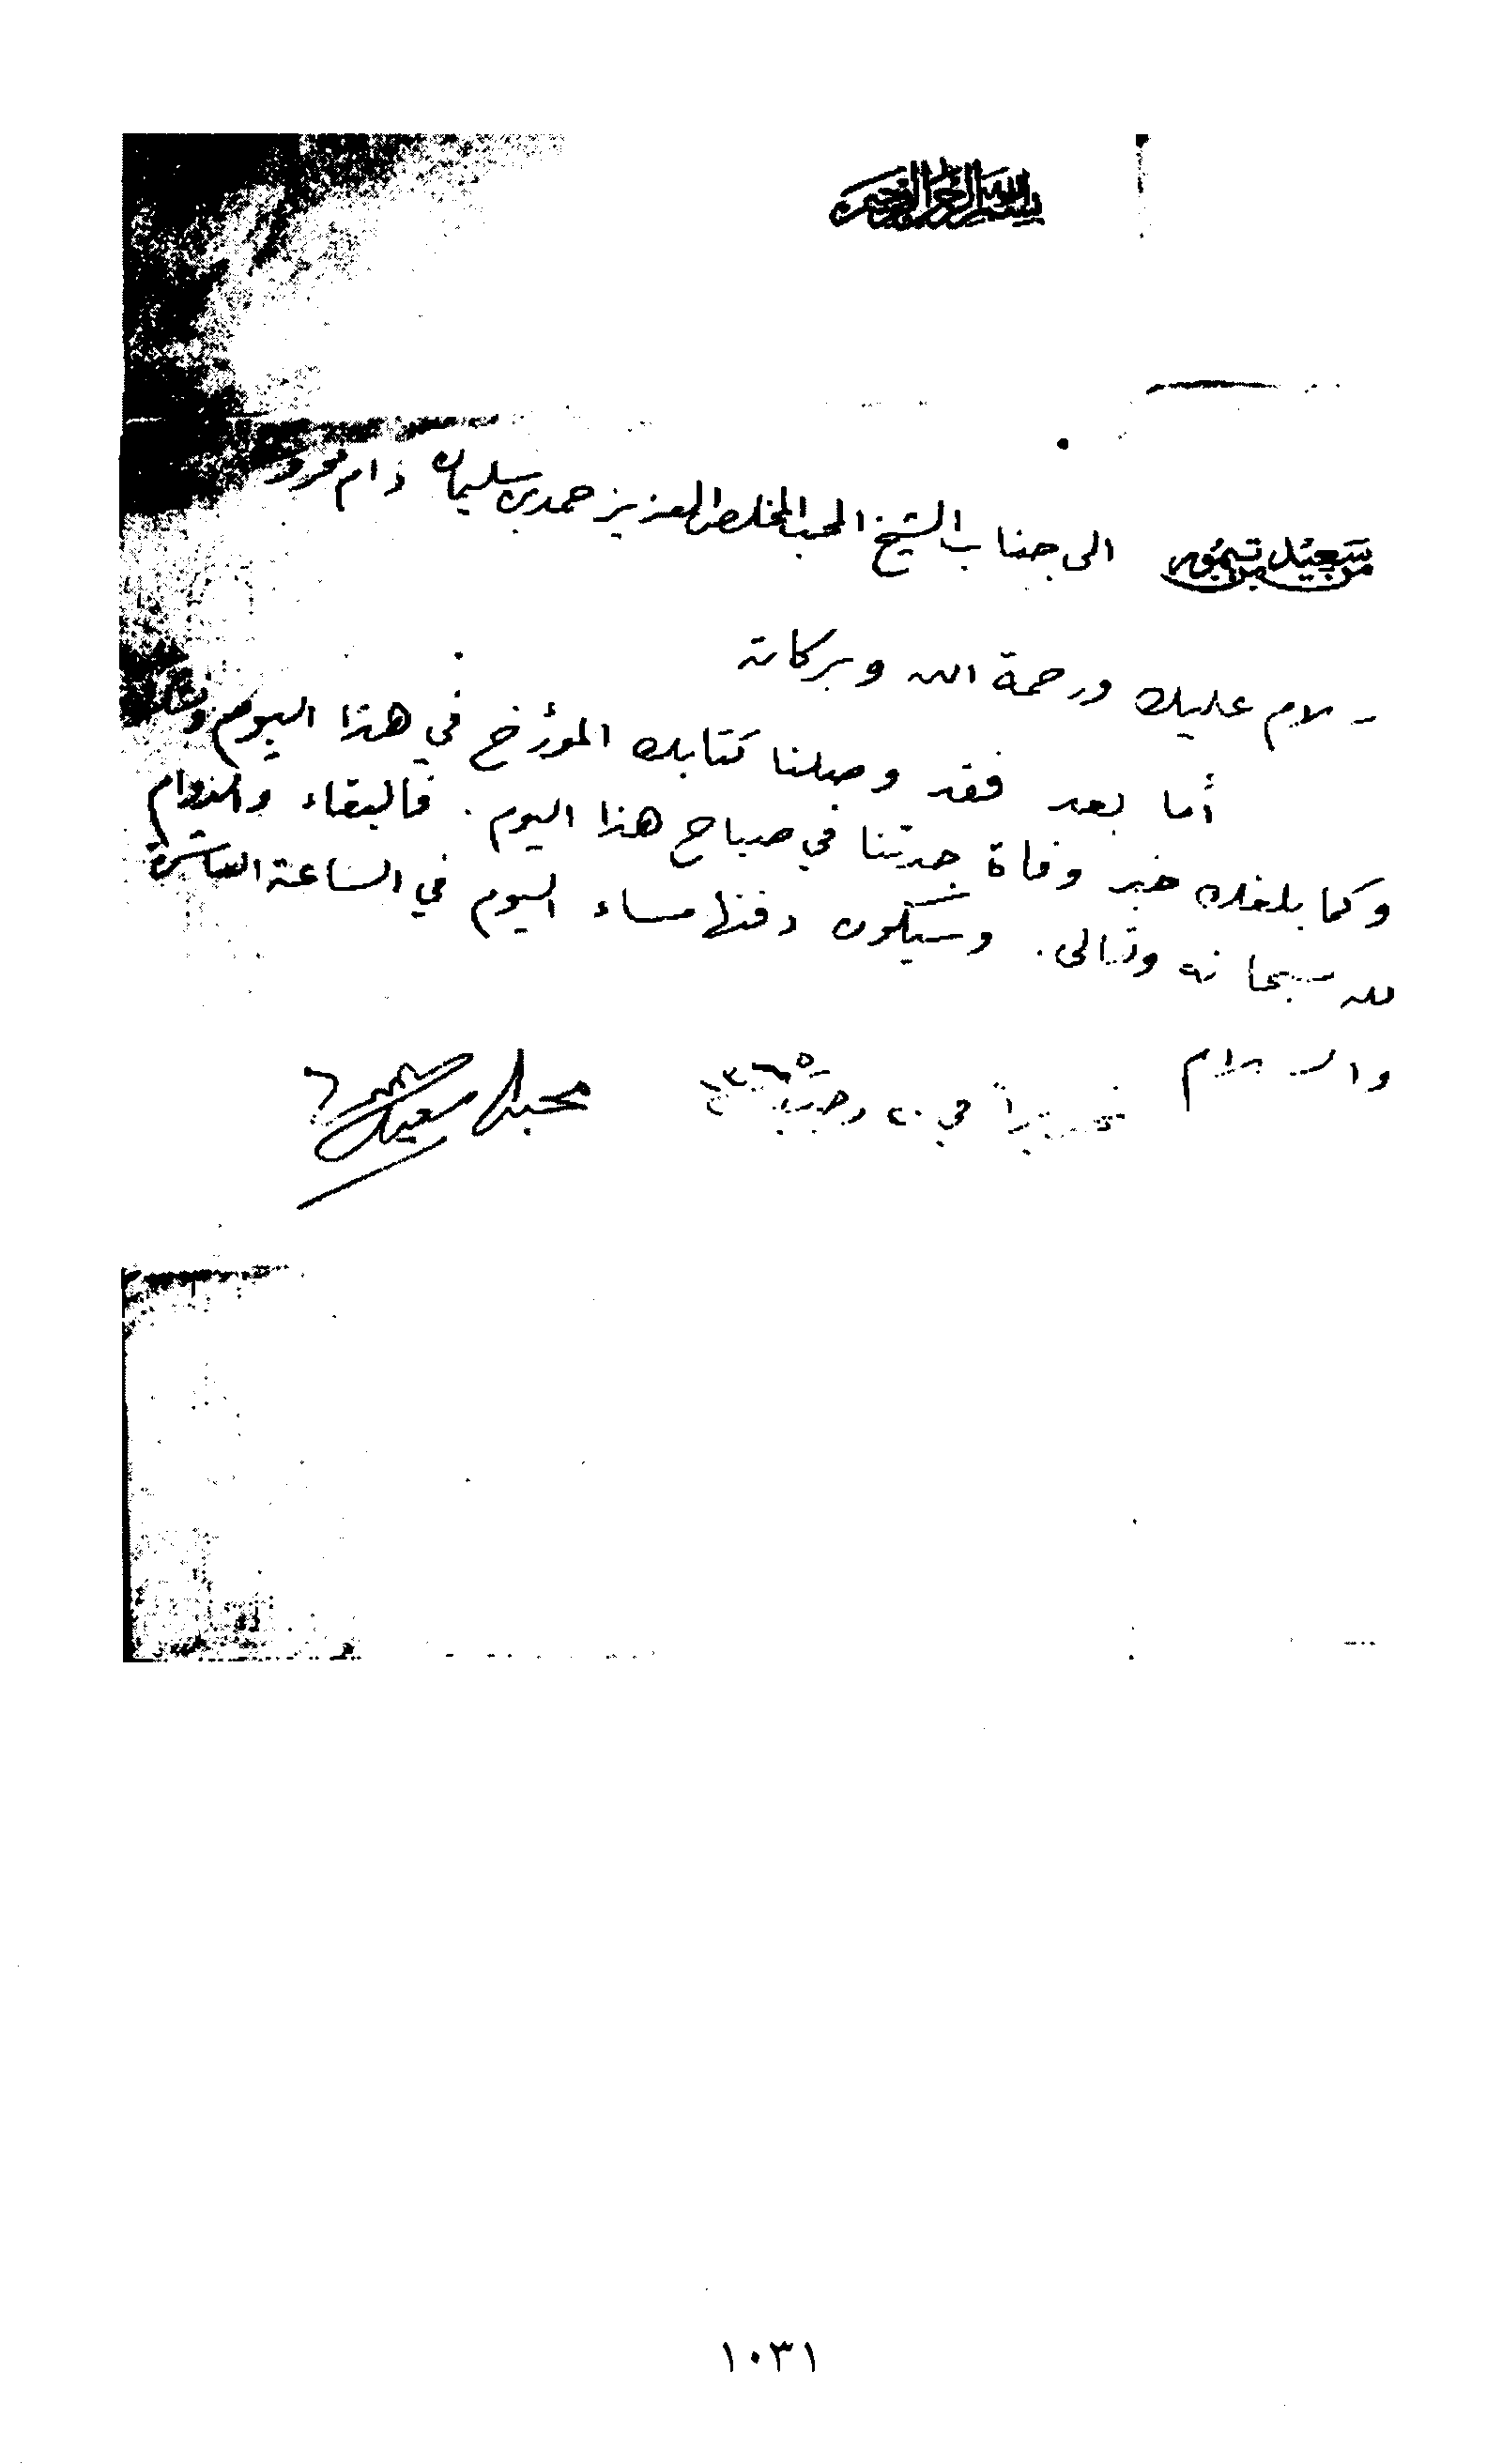 بسم الله الرحمن الرحيم
من سعيد بن تيمور الى جناب الشيخ المحب المخلص العزيز حمد بن سليمان دام محروسا
سلام عليك ورحمة الله وبركاته
أما بعد فقد وصلنا كتابك المؤرخ في هذا اليوم
وكما بلغك خبر وفاة جدتنا في صباح هذا اليوم. فالبقاء والدوام
لله سبحانه وتعالى. وسيكون دفنها مساء اليوم في الساعة العاشرة
والسلام تحريراً في ٢٠ رجب ١٣٦٥ محبك سعيد بن تيمور
١٠٣١